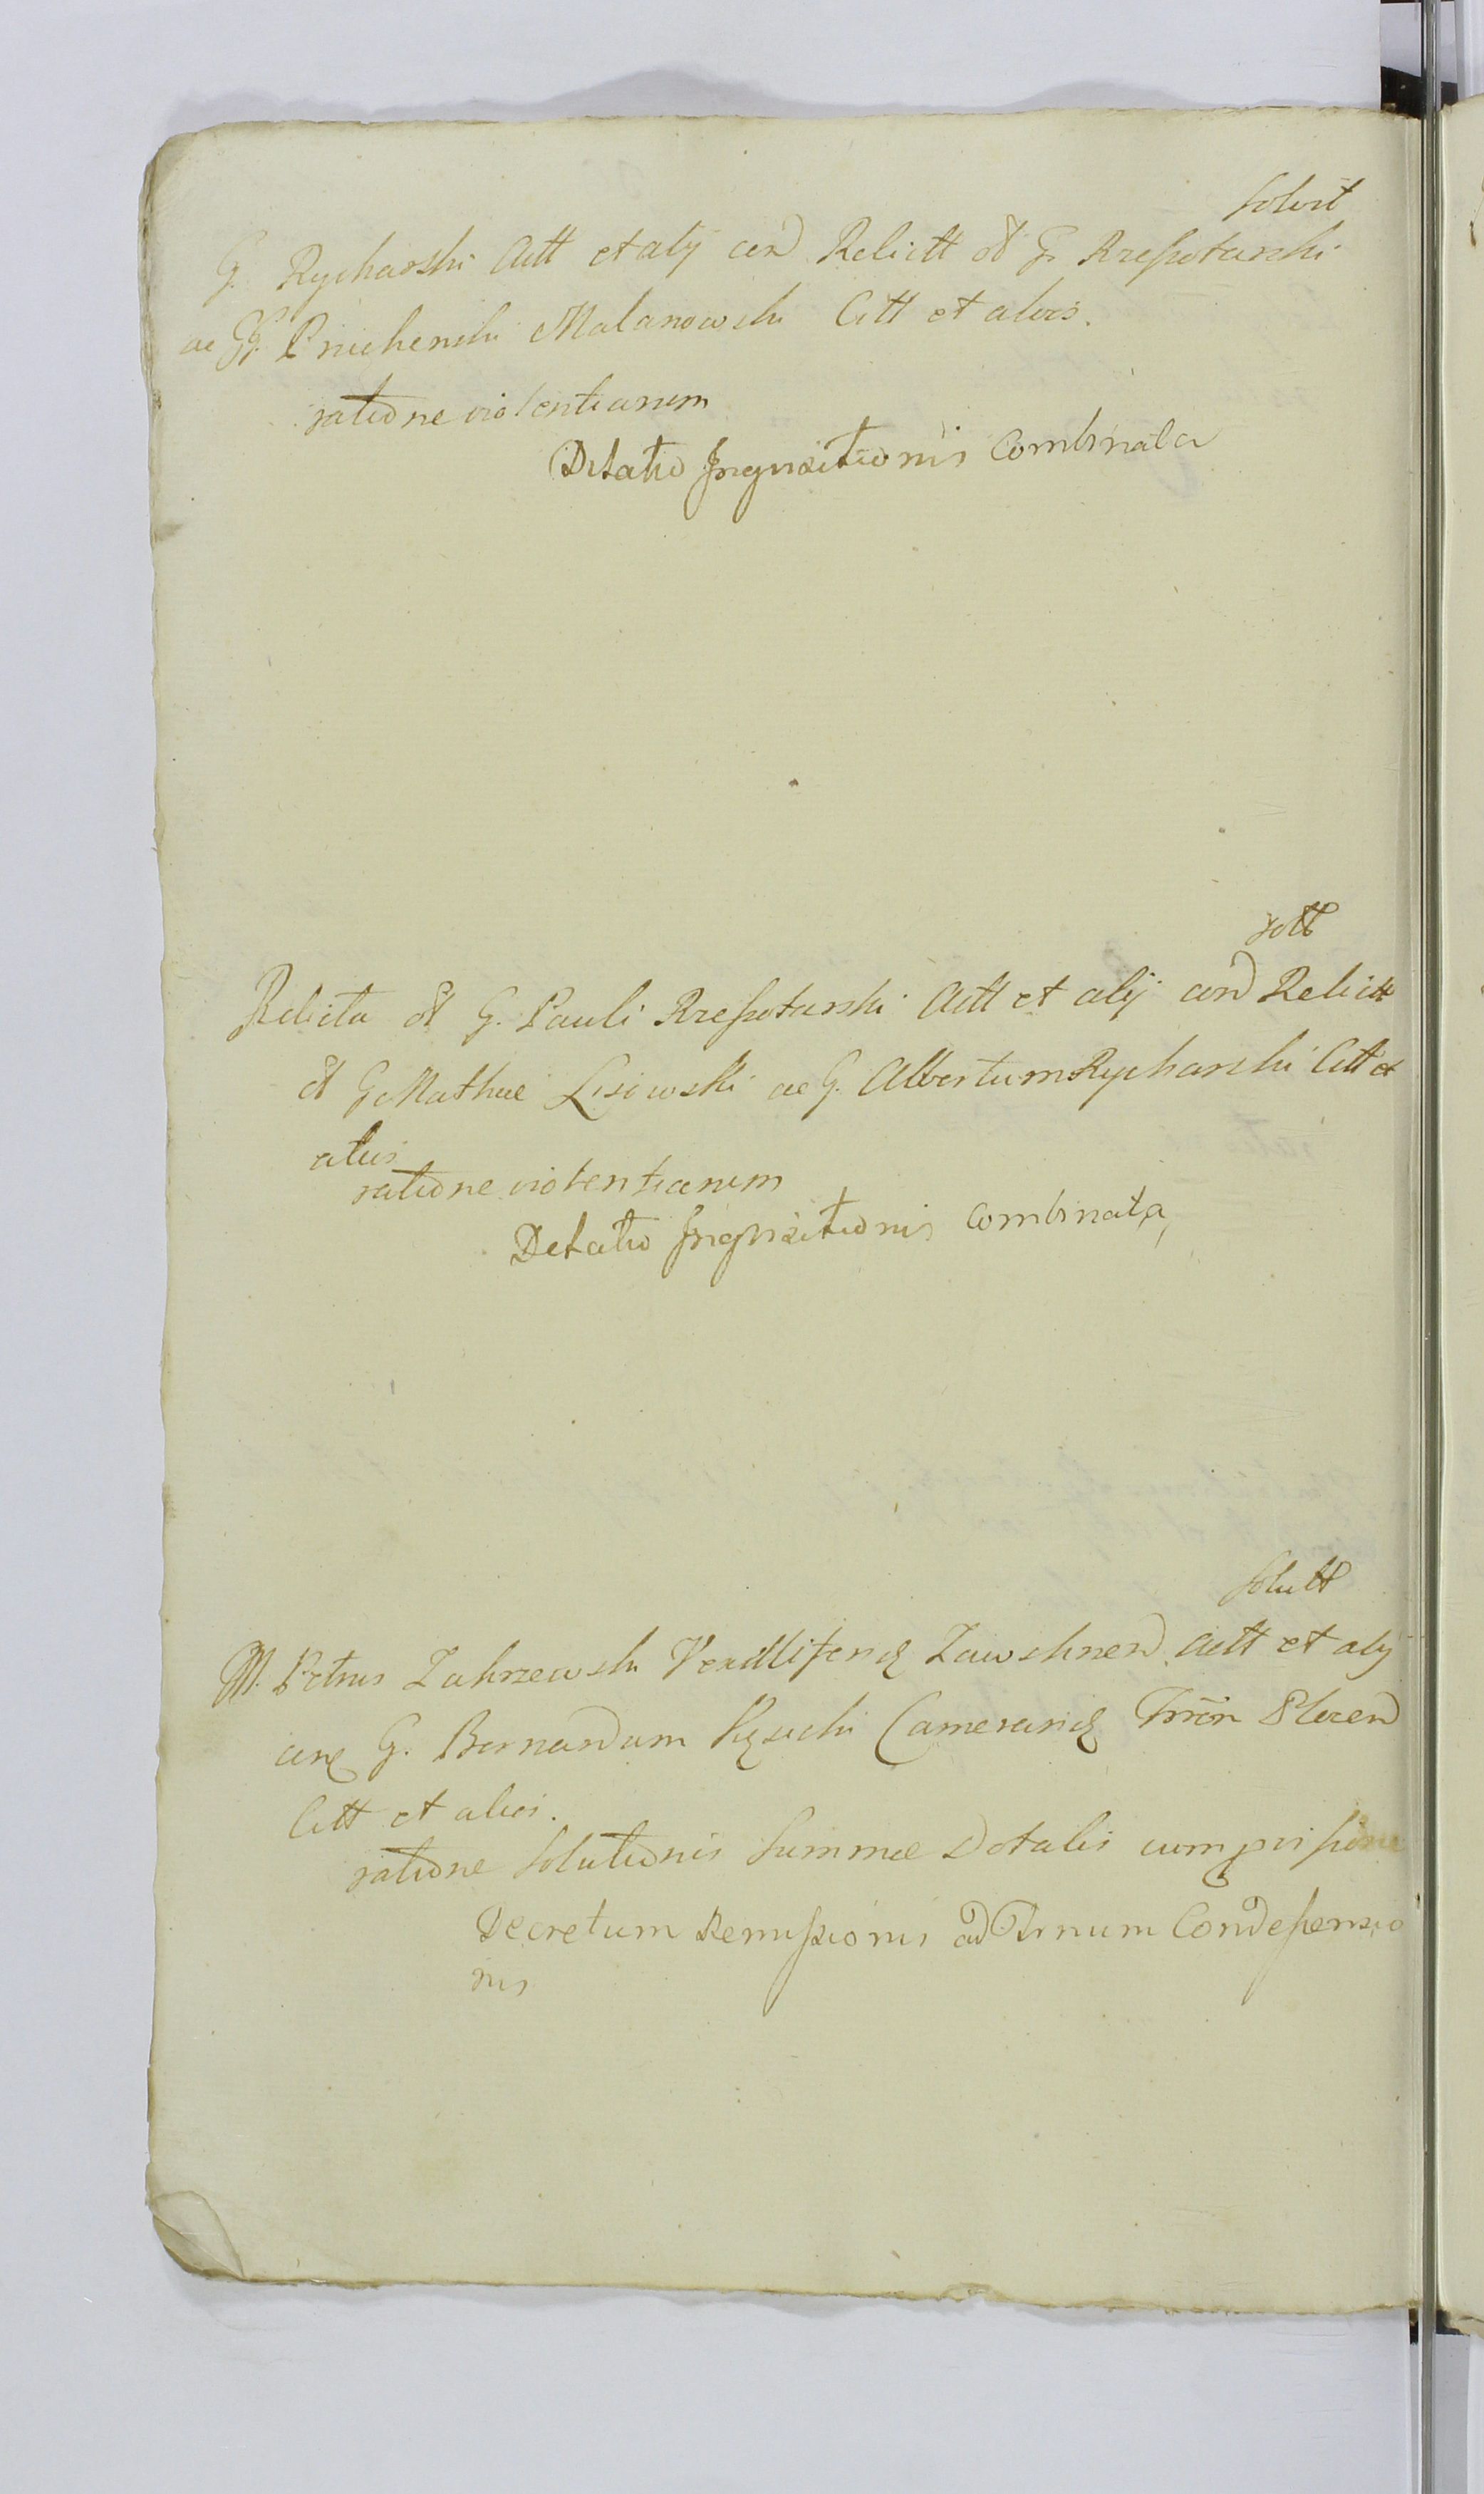 solvit
G. Rycharski Actt et alij con Relictt olt G. Rzeszotarski
ac GG. Malanowski Citt et alios.
ratione violentiarum
Delatio Inquisitionis Combinata
soltt
Relicta olt G. Pauli Rzeszotarski Actt et alij con Relictt
olt G. Mathiae Lisowski ac G. Albertum Rycharski Citt et
alios
ratione violentiarum
Delatio Inquisitionis Combinata
solutt
M. Petrus Zakrzewski Vexillifer Zawskrnen Actt et alij
G. Bernardum Trrn Plocen
Citt et alios.
ratione Solutionis Summae Dotalis cum
Decretum Remissionis ad Trnum Condescensio
nis